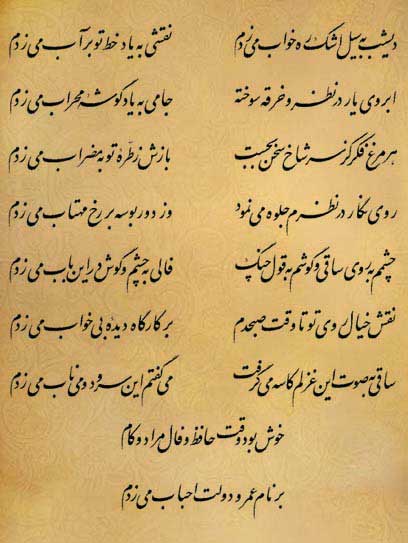 دیشب به سیل اشک ره خواب می زدم
نقشی به یاد خط تو بر آب می زدم
ابروی یار در نظر و خرقه سوخته
جامی به یاد گوشه محراب می زدم
هر مرغ فکر کز سر شاخ سخن بجست
بازش ز طره تو به مضراب می زدم
روی نگار در نظرم جلوه می نمود
وز دور بوسه بر رخ مهتاب می زدم
چشم به روی ساقی و گوشم به قول چنگ
فالی به چشم و گوش در این باب می زدم
نقش خیال روی تو تا وقت صبحدم
بر کارگاه دیده بی خواب می زدم
ساقی به صوت این غزلم کاسه می گرفت
می گفتم این سرود و می ناب می زدم
خوش بود وقت حافظ و فال مراد و کام
بر نام عمر و دولت احباب می زدم